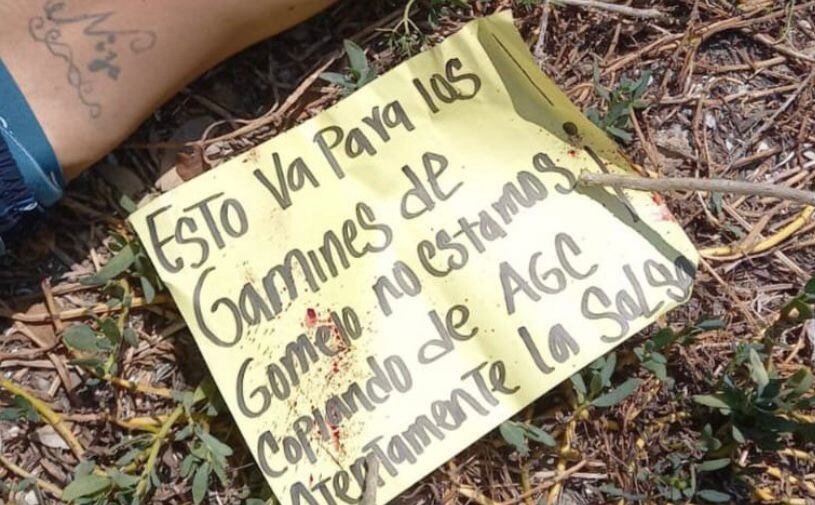 Esto va para los
Gamines de
Gomelo no estamos
Copiando de AGC
Atentamente la Salsa